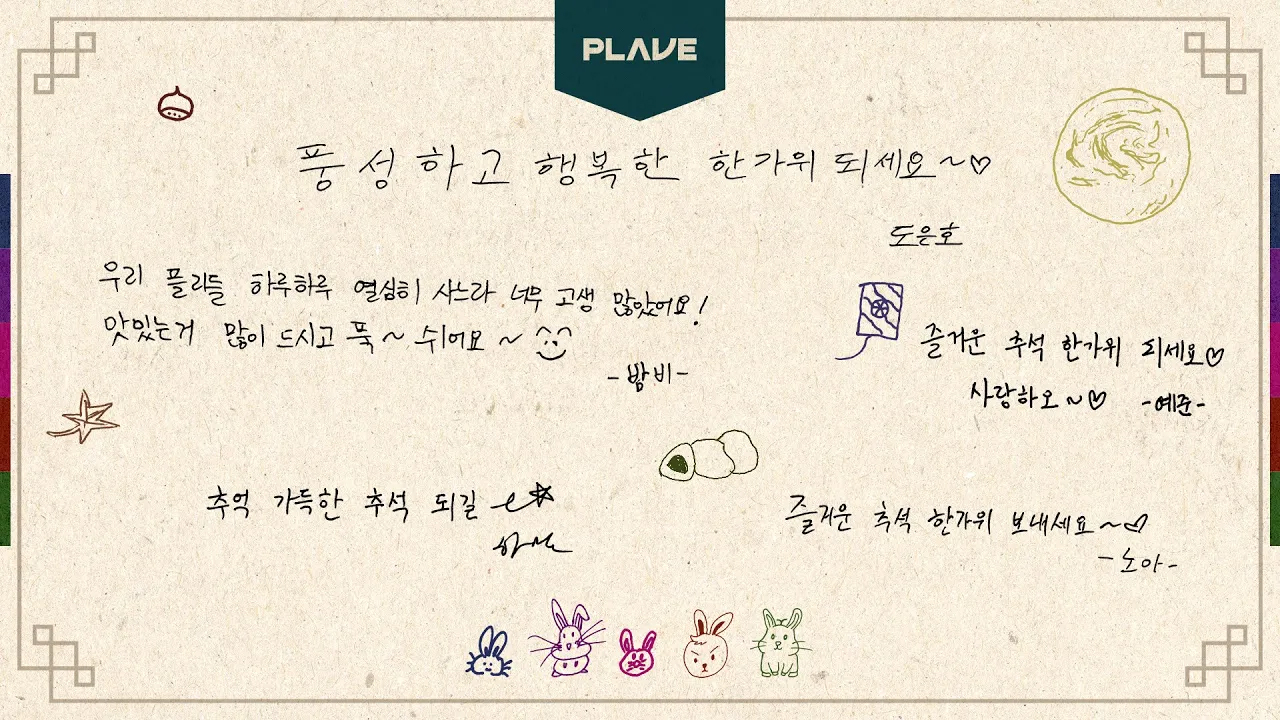 PLAVE
풍성하고 행복한 한가위 되세요~♡
도은호
우리 플리들 하루하루 열심히 사느라 너무 고생 많았어요!
맛있는거 많이 드시고 푹~ 쉬어요~
-밤비-
즐거운 추석 한가위 되세요♡
사랑하오~♡ -예준-
추억 가득한 추석 되길
즐거운 추석 한가위 보내세요~♡
-노아-